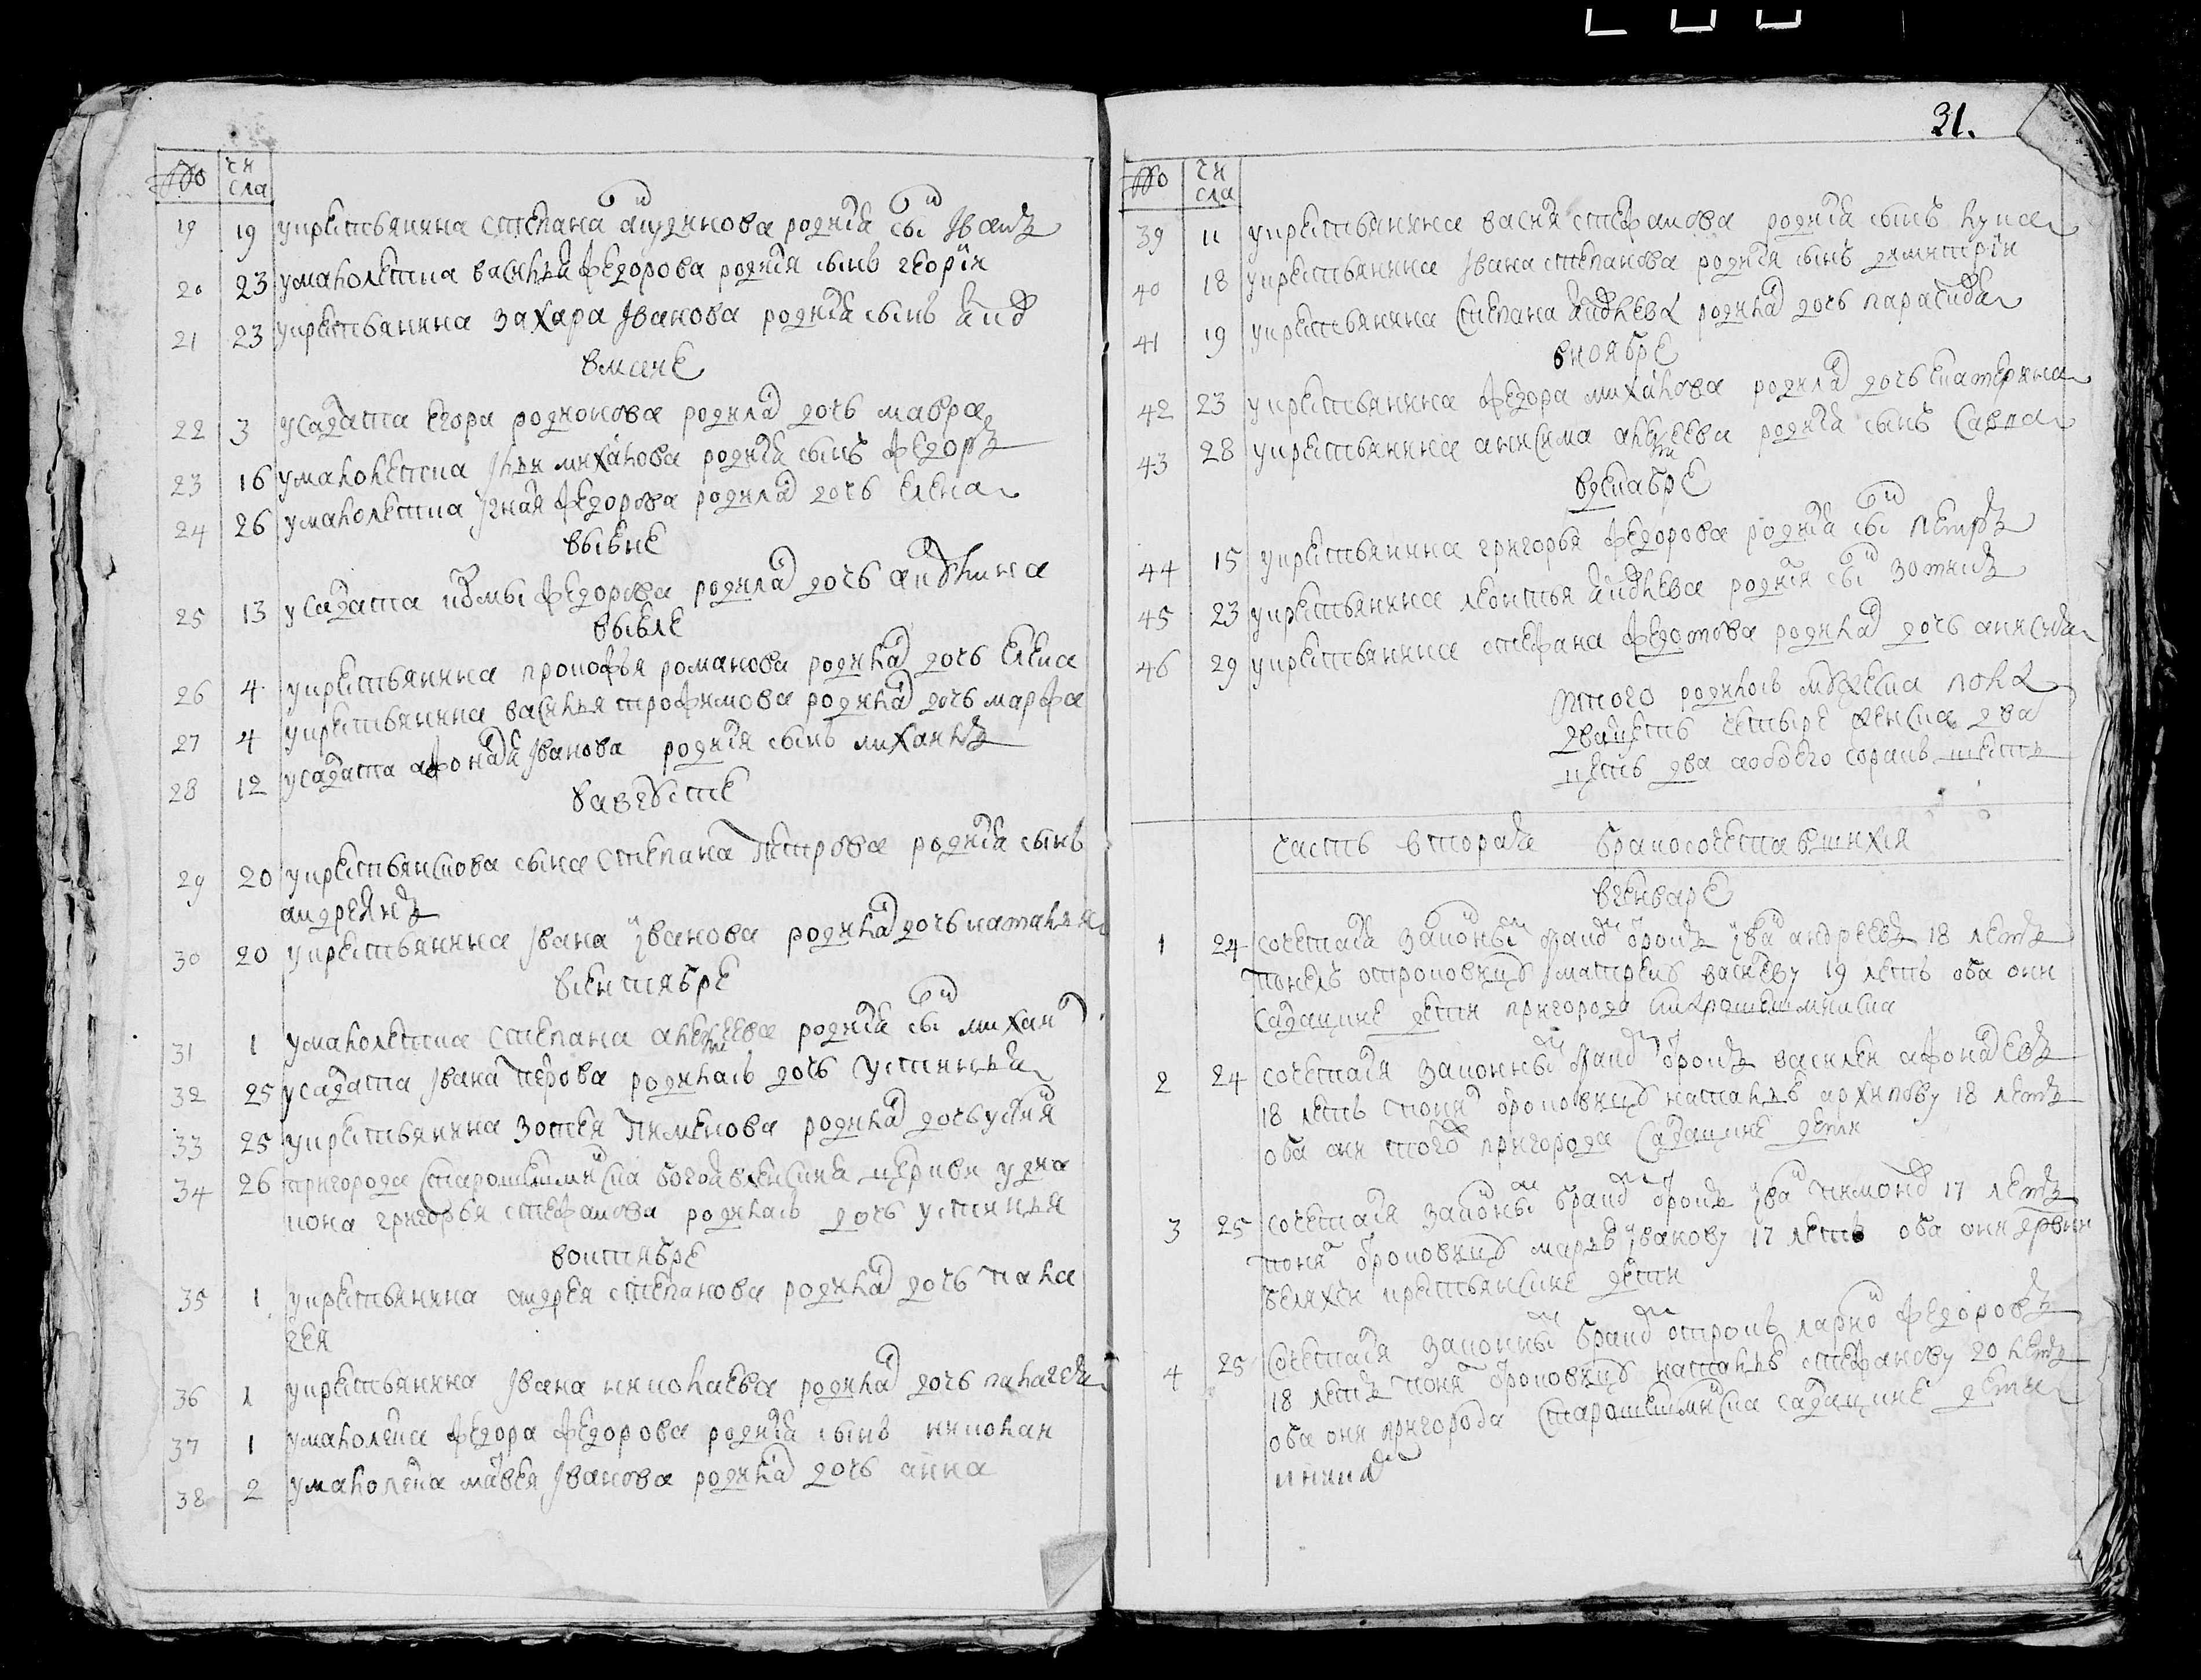 31.
№ чи
сла
19 19 у крестьянина степана родился сынъ Іванъ
20 23 у малолетка василья федорова родился сынъ георгiи
21 23 у крестьянина захара Іванова родился сынъ
в мае
22 3 у салдата егора родионова родилас дочь мавра
23 16 у малолетка Ильи михаилова родился сынъ федоръ
24 26 у малолетка Игнатя федорова родилас дочь елена
в ыюне
25 13 у салдата козмы федорова родилас дочь акулина
в ыюле
26 4 у крестьянина прокофья романова родилас дочь
27 4 у крестьянина василья трофимова родилас дочь марфа
28 12 у салдата афонася Іванова родился сынъ михаилъ
в августе
29 20 у крестьянскова сына степана петрова родился сынъ
андреянъ
30 20 у крестьянина Івана Іванова родилас дочь наталья
в сентябре
31 1 у малолетка степана алексеева родился сынъ михаил
32 25 у салдата Івана родилась дочь устинья
33 25 у крестьянина зотея пименова родилас дочь
34 26 пригорода старошешминска богоявленския церкви у дья
кона григорья стефанова родилась дочь устинья
в октябре
35 1 у крестьянина андрея степанова родилас дочь пала
гея
36 1 у крестьянина Івана николаева родилас дочь палагея
37 1 у малолетка федора федорова родился сынъ николаи
38 2 у малолетка матвея Іванова родилас дочь анна
№ чи
сла
39 11 у крестьянина василя стефанова родился сынъ лука
40 18 у крестьянина Івана степанова родился сынъ димитрiи
41 19 у крестьянина степана родилас дочь
в ноябре
42 23 у крестьянина федора михаилова родилас дочь екатерина
43 28 у крестьянина анисима алексеева родился сынъ савва
в декабре
44 15 у крестьянина григорья федорова родился сынъ петръ
45 23 у крестьянина леонтья родился сынъ зотикъ
46 29 у крестьянина стефана федотова родилас дочь
итого родилось мужеска пола
дватцеть четыре женска два
цеть два а обоего сорокъ шесть
часть вторая бракосочетавшихся
в генваре
1 24 сочетался законным браком отрокъ Іван андреевъ 18 летъ
понелъ отроковицу матрену василеву 19 летъ оба они
салдацкие дети пригорода старошешминска
2 24 сочетался законным браком отрокъ василеи афонасевъ
18 летъ понял отроковицу наталью архипову 18 летъ
оба они того пригорода салдацкие дети
3 25 сочетался законным браком отрокъ Іван пимонов 17 летъ
понял отроковицу марью Іванову 17 летъ оба они дрвни
беляхчи крестьянские дети
4 25 сочетался законным браком отрокъ ларион федоровъ
18 летъ понял отроковицу наталью стефанову 20 летъ
оба они пригорода старошешминска салдацкие дети